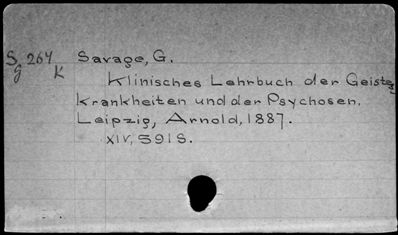 S 264 Savage, G.
g K
Klinisches Lehrbuch der Geistes
krankheiten und der Psychosen.
Leipzig, Arnold, 1887.
XIV, 591 S.